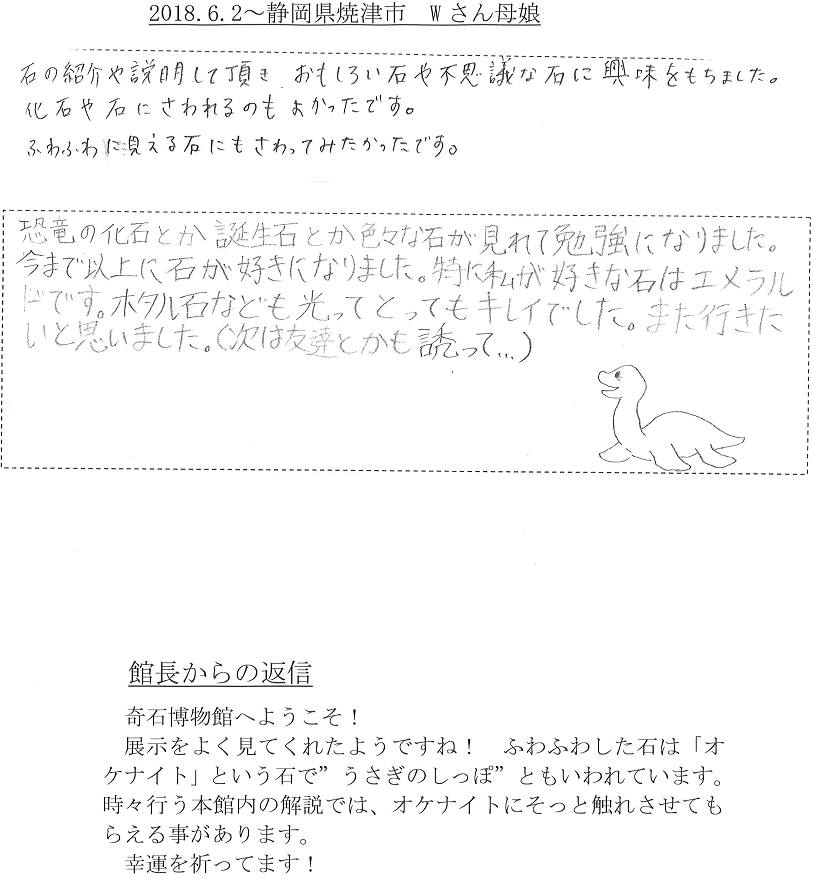 2018.6.2～静岡県焼津市　Wさん母娘
石の紹介や説明して頂き おもしろい石や不思議な石に興味をもちました。
化石や石にさわれるのもよかったです。
ふわふわに見える石にもさわってみたかったです。
恐竜の化石とか誕生石とか色々な石が見れて勉強になりました。
今まで以上に石が好きになりました。特に私が好きな石はエメラル
ドです。ホタル石なども光ってとってもキレイでした。また行きた
いと思いました。(次は友達とかも誘って…)
館長からの返信
奇石博物館へようこそ！
展示をよく見てくれたようですね！　ふわふわした石は「オ
ケナイト」という石で”うさぎのしっぽ”ともいわれています。
時々行う本館内の解説では、オケナイトにそっと触れさせても
らえる事があります。
幸運を祈ってます！